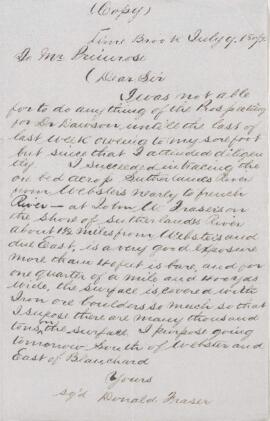 (Copy)
Lime Brook July 9, 1872
To Mr Primrose
(Dear Sir
I was not able
for to do anything of the Prospecting
for Dr Dawson, untill the last of
last week owing to my sore foot
but since that I attended diligen
tly. I succeed in tracing the
ore bed across Sutherlands River
from Websters nearly to french
River – at John W. Fraserson
the shore of Sutherlands River
about 1½ miles from Websters and
due East, is a very good exposure
more than 10 feet is bare, and for
one quarter of a mile and 400 yds
wide, the surface is covered with
Iron ore boulders so much so that
I supose there are many thousand
tons, on the surface I purpose going
tomorrow South of Webster and
East of Blanchard
Yours
sg'd Donald Fraser